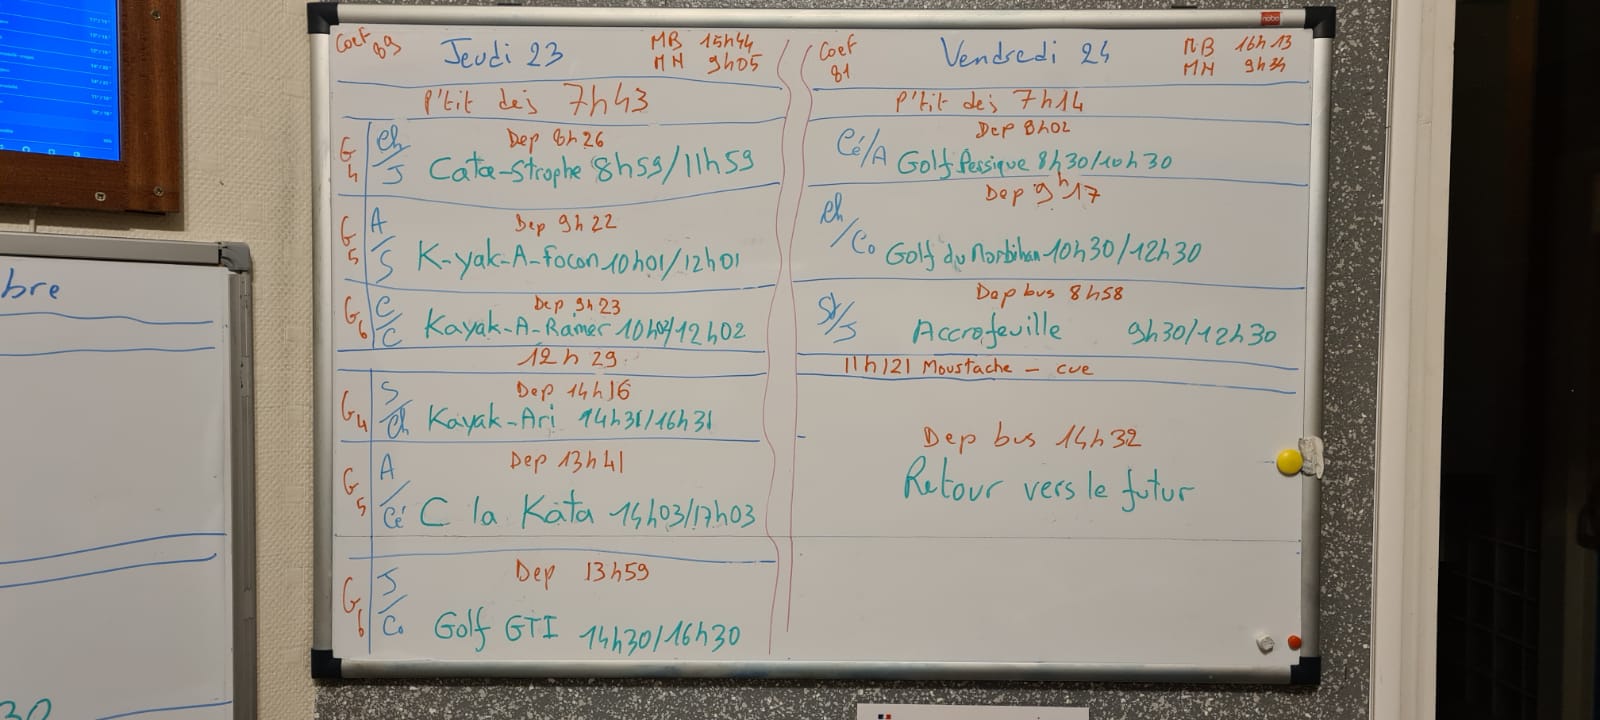 nobo
Coef 89
Jeudi 23
MB 15h44
MH 9h05
P'tit dèj 7h43
G4
Ch/J
Dep 8h26
Cata-Strophe 8h59/11h59
G5
A/S
Dep 9h22
K-yak-A-Focon 10h01/12h01
G6
C/C
Dep 9h23
Kayak-A-Ramer 10h02/12h02
12h29
G4
S/Ch
Dep 14h16
Kayak-Ari 14h31/16h31
G5
A/Cé
Dep 13h41
C la Kata 14h03/17h03
G6
J/Co
Dep 13h59
Golf GTI 14h30/16h30
Coef 81
Vendredi 24
MB 16h13
MH 9h34
P'tit dèj 7h14
Cé/A
Dep 8h02
Golf Persique 8h30/10h30
Ch/Co
Dep 9h17
Golf du Morbihan 10h30/12h30
St/J
Dep bus 8h58
Accrofeuille 9h30/12h30
11h121 Moustache - cue
Dep bus 14h32
Retour vers le futur
bre
30